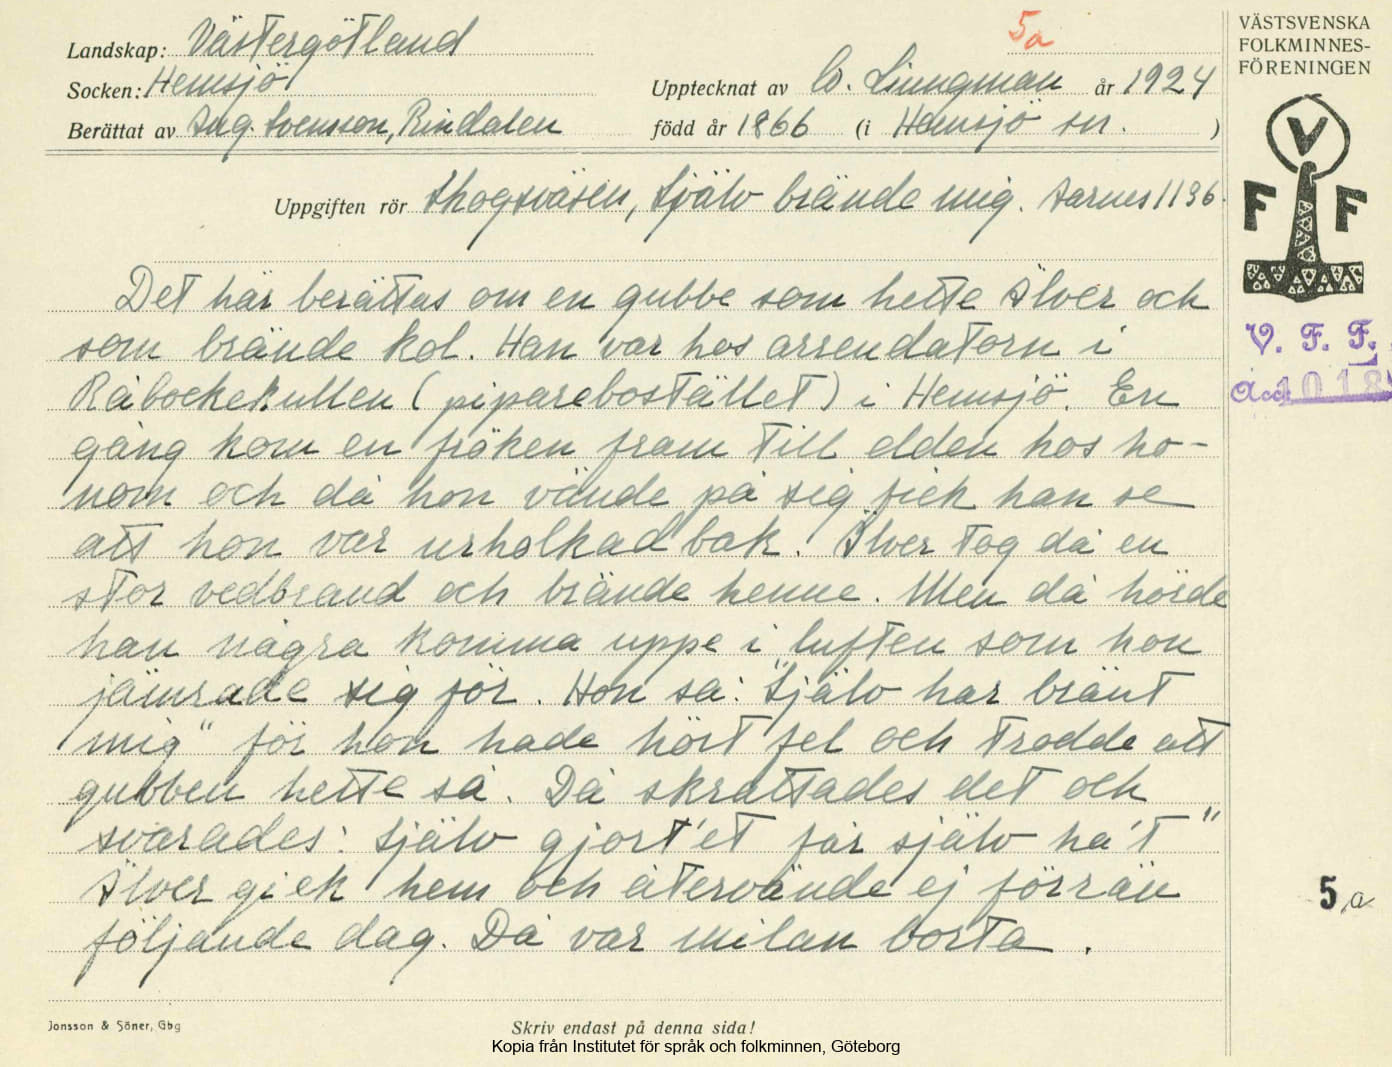 5a
VÄSTSVENSKA
FOLKMINNES-
FÖRENINGEN
Landskap: Västergötland
Socken: Hemsjö
Upptecknat av W. Liungman år 1924
Berättat av Aug. Svensson, Rindalen
född år 1866 (i Hemsjö sn. )
V
F F
Uppgiften rör Skogsväsen, Själv brände mig. Aarnes 1136.
Det här berättas om en gubbe som hette Älver och
som brände kol. Han var hos arrendatorn i
Råbockekullen (piparebostället) i Hemsjö. En
gång kom en fröken fram till elden hos ho-
nom och då hon vände på sig fick han se
att hon var urholkad bak. Älver tog då en
stor vedbrand och brände henne. Men då hörde
han några komma uppe i luften som hon
jämrade sig för. Hon sa: "Själv har bränt
mig" för hon hade hört fel och trodde att
gubben hette så. Då skrattades det och
svarades: Själv gjort'et får själv ha't"
Älver gick hem och återvände ej förrän
följande dag. Då var milan borta.
V. F. F.
Acc. 1018
5,a
Jonsson & Söner, Gbg
Skriv endast på denna sida!
Kopia från Institutet för språk och folkminnen, Göteborg